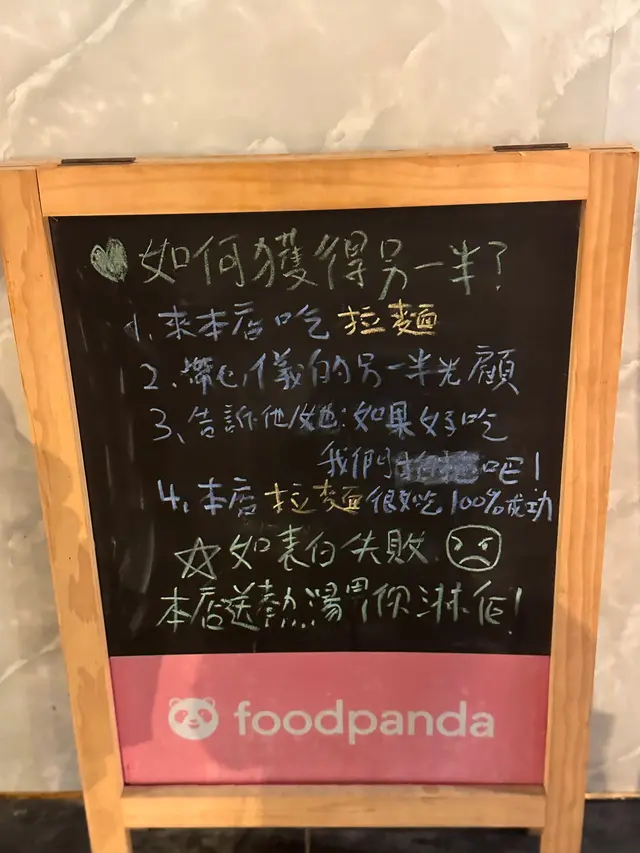 如何獲得另一半?
1、來本店吃拉麵
2、帶心儀的另一半光顧
3、告訴他/她:如果好吃
我們吧!
4、本店拉麵很好吃100%成功
☆如表白失敗
本店送熱湯畀你淋佢!
foodpanda